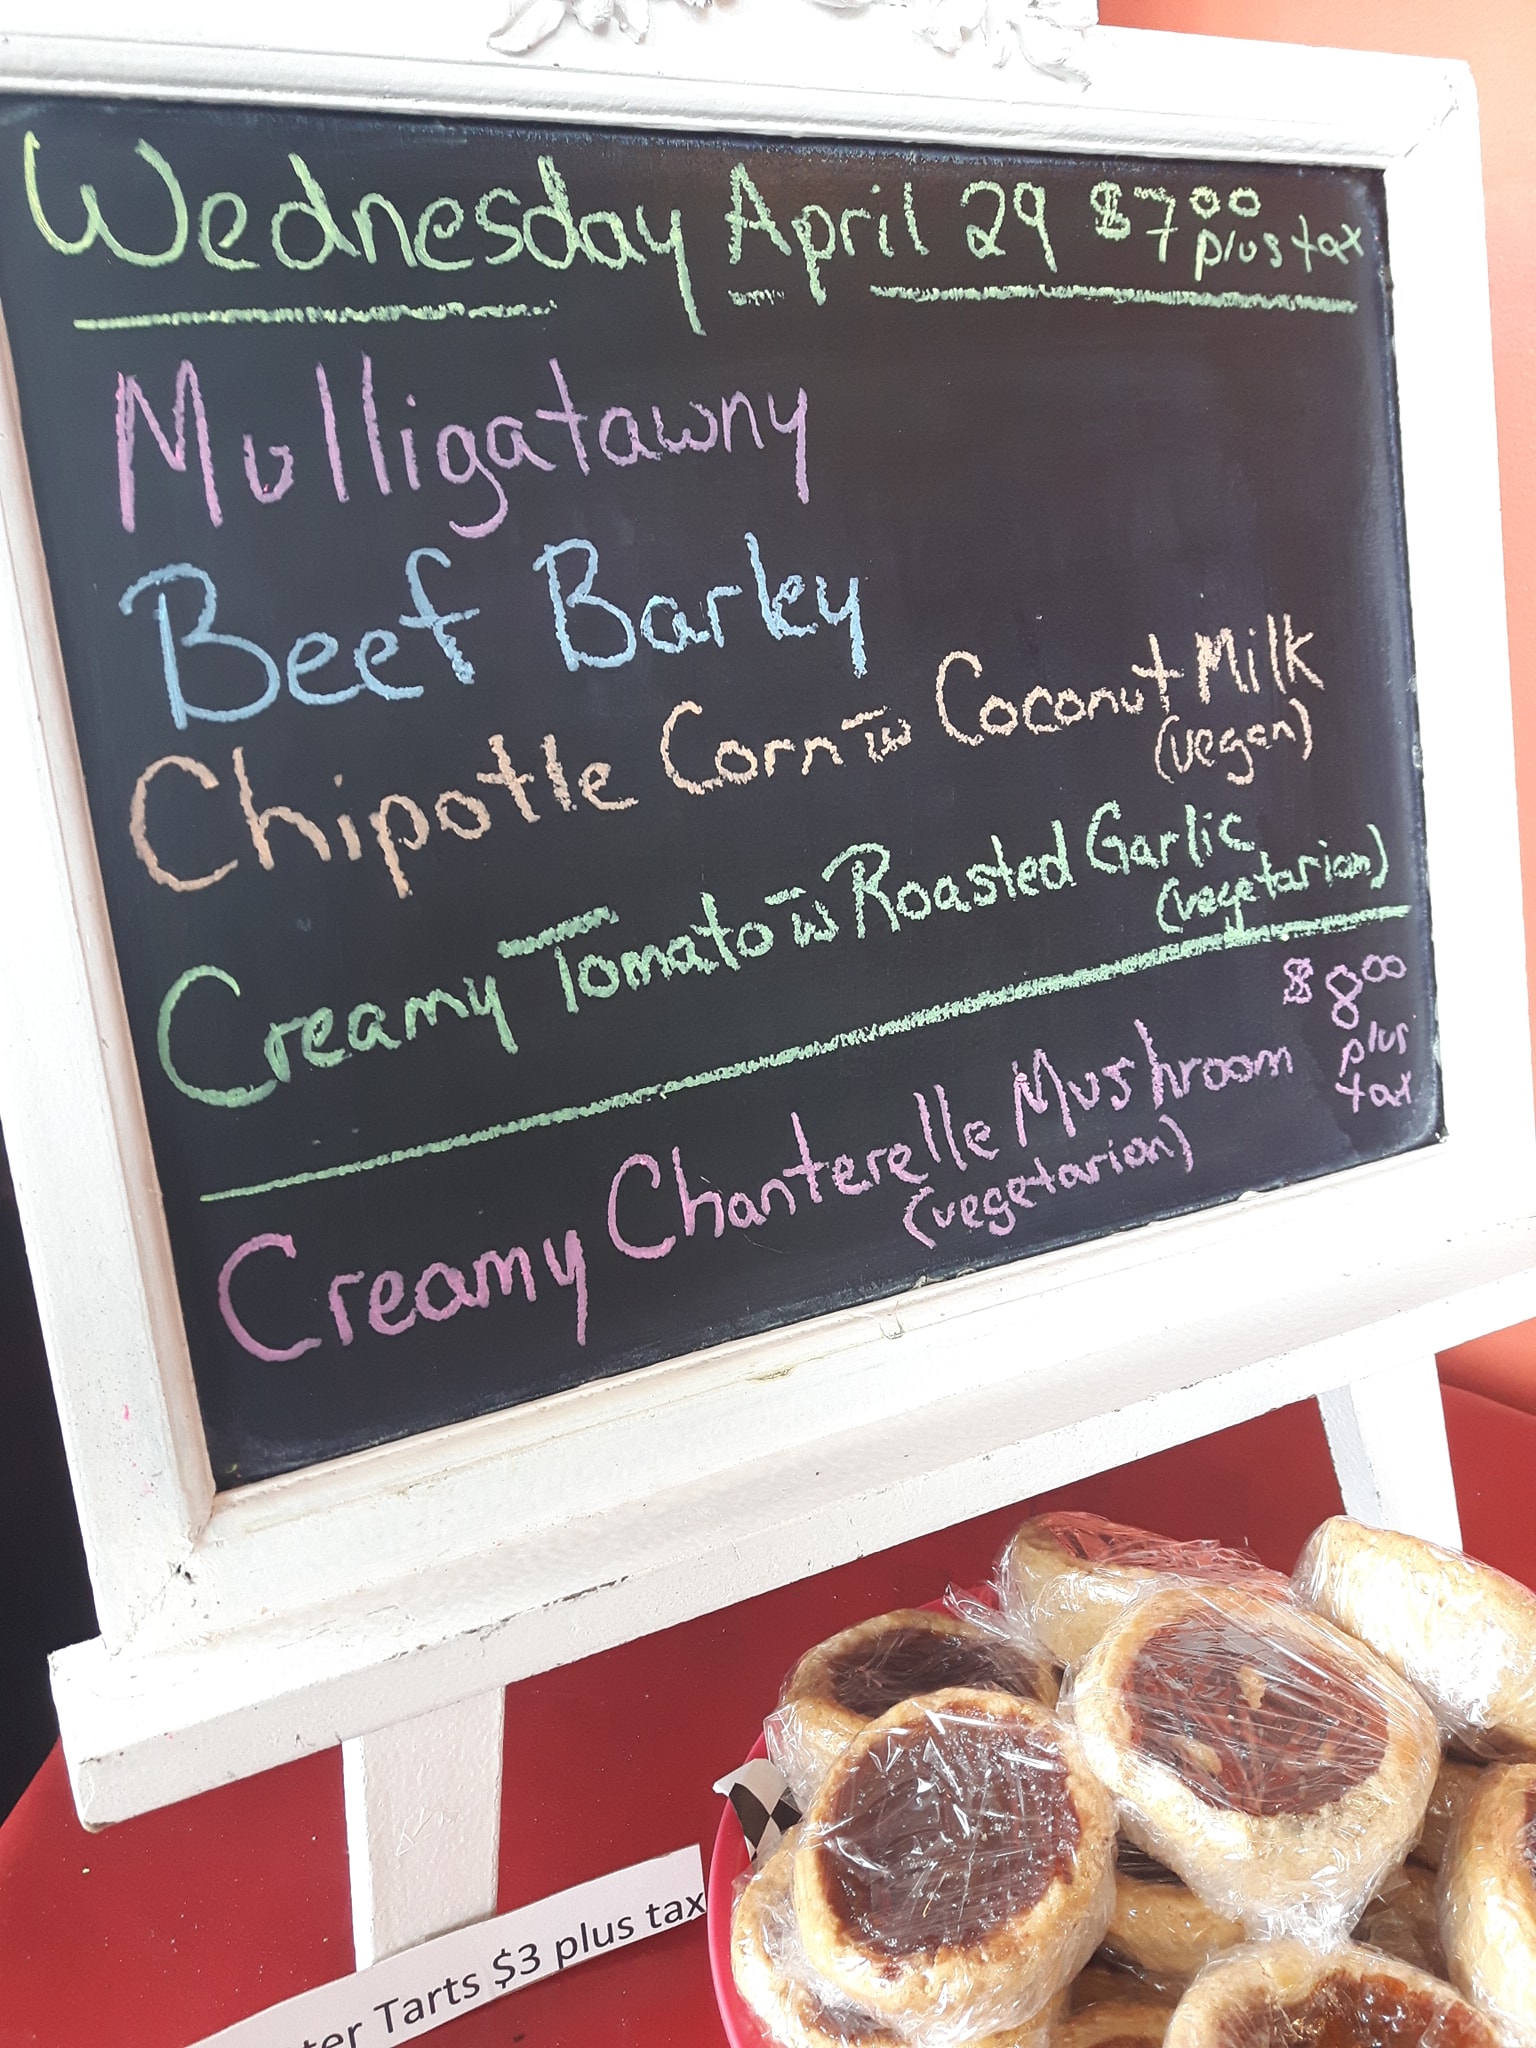 Wednesday April 29 $7.00 plus tax
Mulligatawny
Beef Barley
Chipotle Corn w Coconut Milk
(vegan)
Creamy Tomato w Roasted Garlic
(vegetarian)
$8.00 plus tax
Creamy Chanterelle Mushroom
(vegetarian)
Tarts $3 plus tax